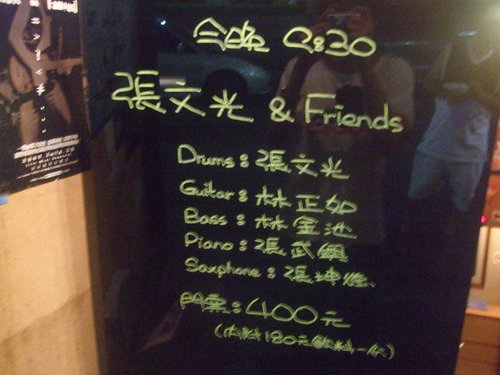 今晚 9:30
張文光 & Friends
Drums: 張文光
Guitar: 林正如
Bass: 林金池
Piano: 張武鋼
Saxphone: 張坤德
門票: 400元
(內料180元飲料一杯)